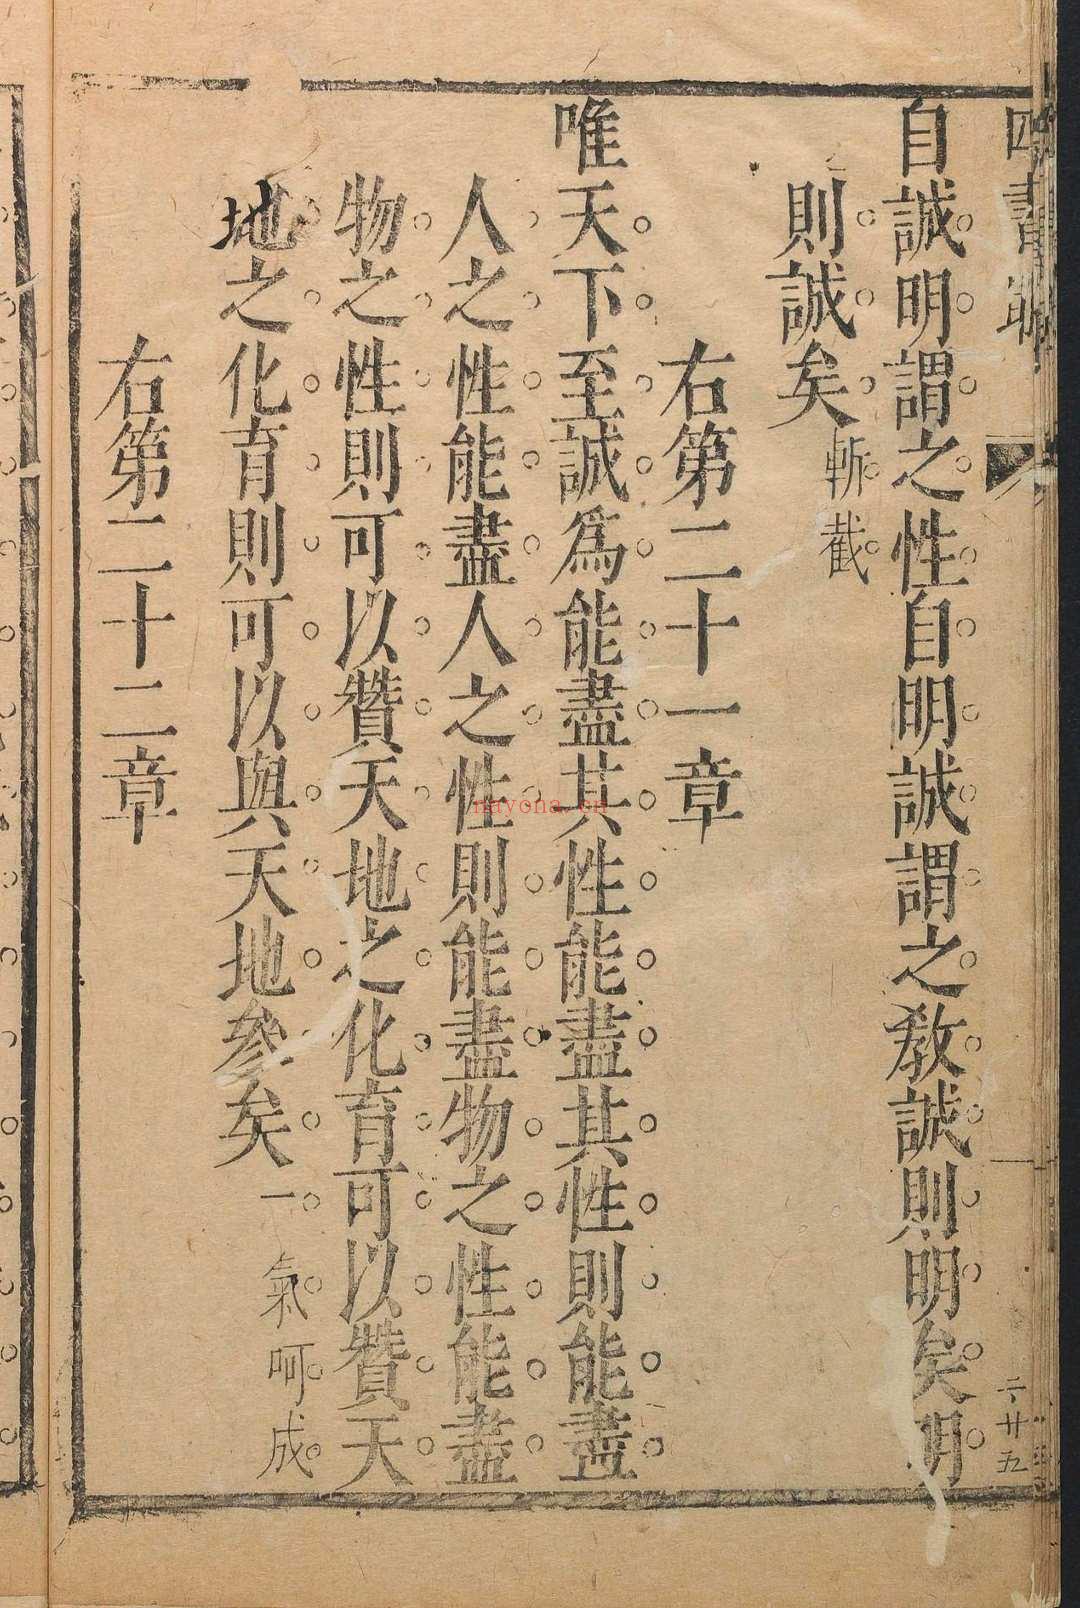 自誠明謂之性自明誠謂之敎誠則明矣明
則誠矣 斬截
右第二十一章
唯天下至誠爲能盡其性能盡其性則能盡
人之性能盡人之性則能盡物之性能盡
物之性則可以贊天地之化育可以贊天
地之化育則可以與天地參矣 一氣呵成
右第二十二章
四書
二 廿五
nayona.cn